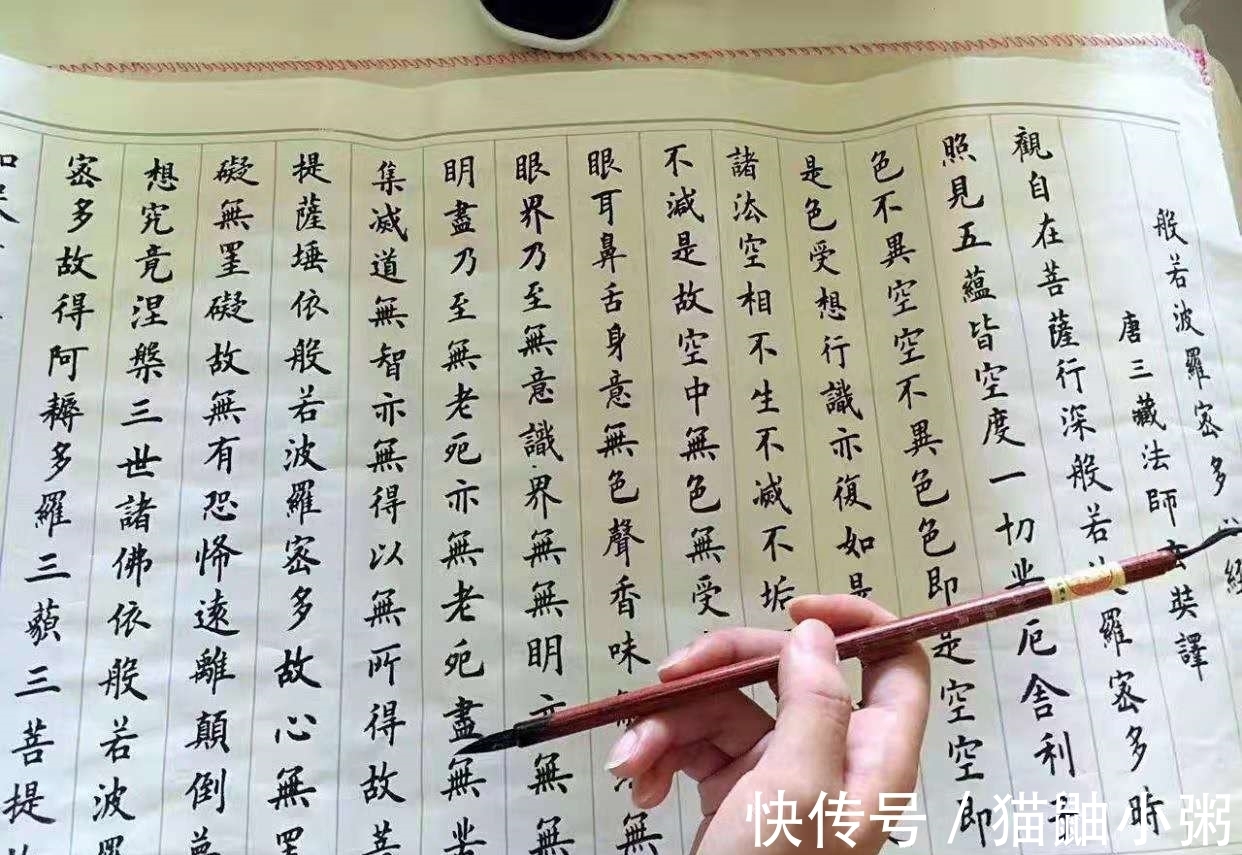 般若波羅密多心經
唐三藏法師玄奘譯
觀自在菩薩行深般若波羅密多時
照見五蘊皆空度一切苦厄舍利
色不異空空不異色色即是空空即
是色受想行識亦復如是
諸法空相不生不滅不垢
不減是故空中無色無受
眼耳鼻舌身意無色聲香味無
眼界乃至無意識界無無明亦無
明盡乃至無老死亦無老死盡無苦
集滅道無智亦無得以無所得故菩
提薩埵依般若波羅密多故心無罣
礙無罣礙故無有恐怖遠離顛倒夢
想究竟涅槃三世諸佛依般若波羅
密多故得阿耨多羅三藐三菩提故
快传号 / 猫鼬小粥